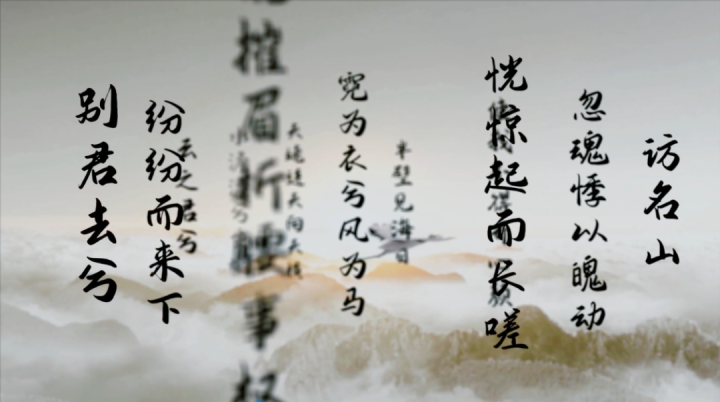 访名山
忽魂悸以魄动
恍惊起而长嗟
半壁见海日
霓为衣兮风为马
天姥连天向天横
摧眉折腰事
云之君兮
纷纷而来下
别君去兮